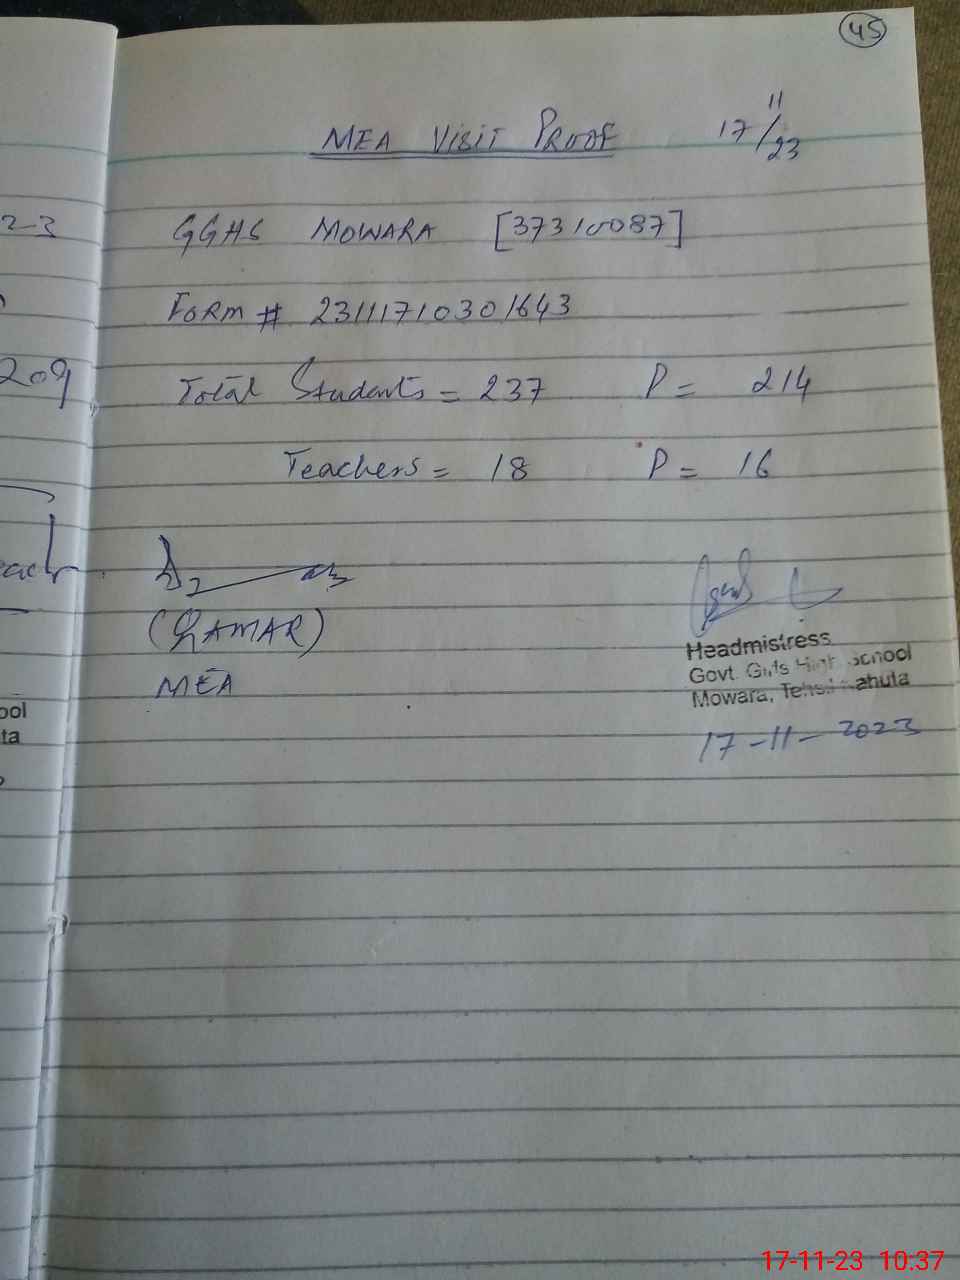 45
MEA Visit Proof 17/11/23
GGHS MOWARA [37310087]
Form # 23111710301643
Total Students = 237 P = 214
Teachers = 18 P = 16
(QAMAR)
MEA
Headmistress
Govt. Girls High School
Mowara, Tehsil Kahuta
17-11-2023
2-3
209
ool
ta
17-11-23 10:37